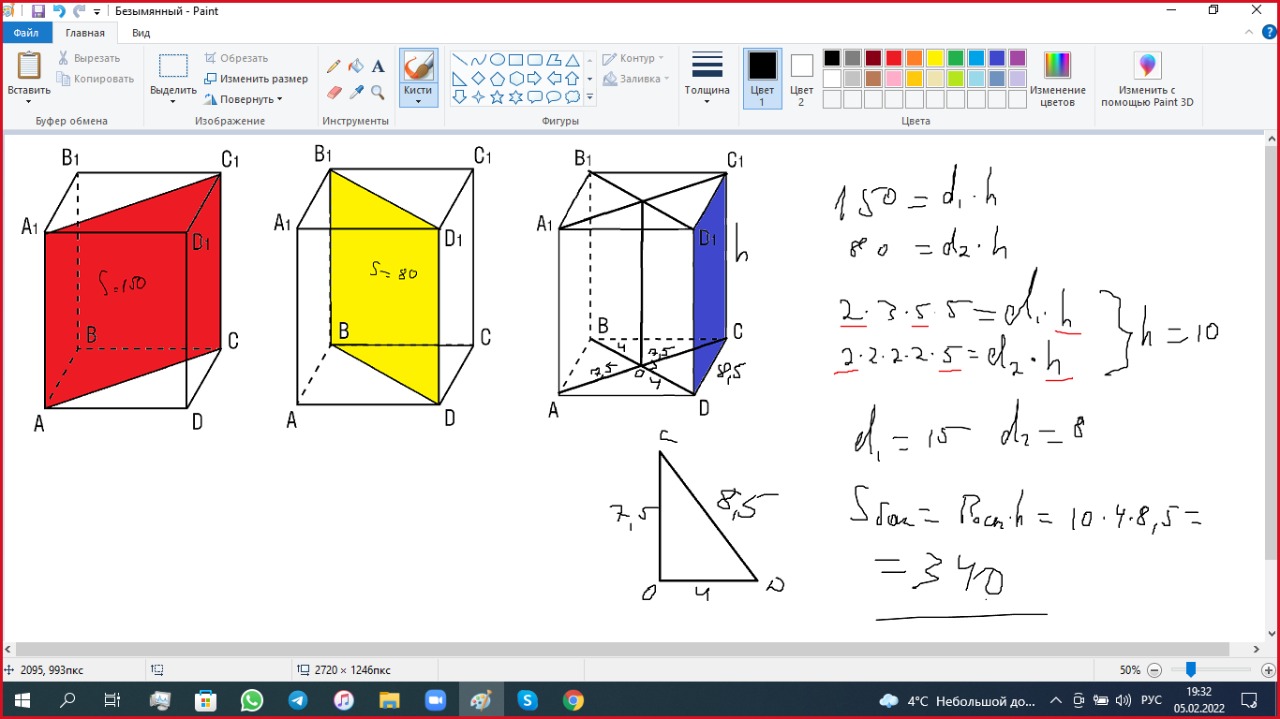 Безымянный - Paint
Файл
Главная
Вид
Вставить
Вырезать
Копировать
Буфер обмена
Выделить
Обрезать
Изменить размер
Повернуть
Изображение
A
Инструменты
Кисти
Контур
Заливка
Фигуры
Толщина
Цвет 1
Цвет 2
Цвета
Изменение цветов
Изменить с помощью Paint 3D
B1 C1
A1 D1
S=150
B C
A D
B1 C1
A1 D1
S=80
B C
A D
B1 C1
A1 D1 h
B C
4 7,5
7,5 O 4 8,5
A D
C
7,5 8,5
O 4 D
150 = d1·h
80 = d2·h
2·3·5·5 = d1·h
2·2·2·2·5 = d2·h
h = 10
d1 = 15 d2 = 8
Sбок = Pосн·h = 10·4·8,5 =
= 340
2095, 993пкс
2720 × 1246пкс
50%
4°C Небольшой до...
РУС
19:32
05.02.2022